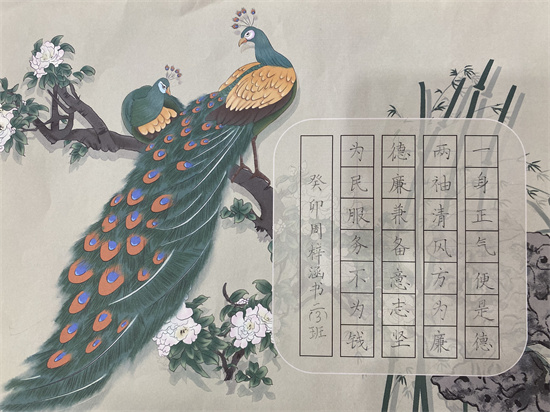 一身正气便是德
两袖清风方为廉
德廉兼备意志坚
为民服务不为钱
癸卯周梓涵书二(3)班